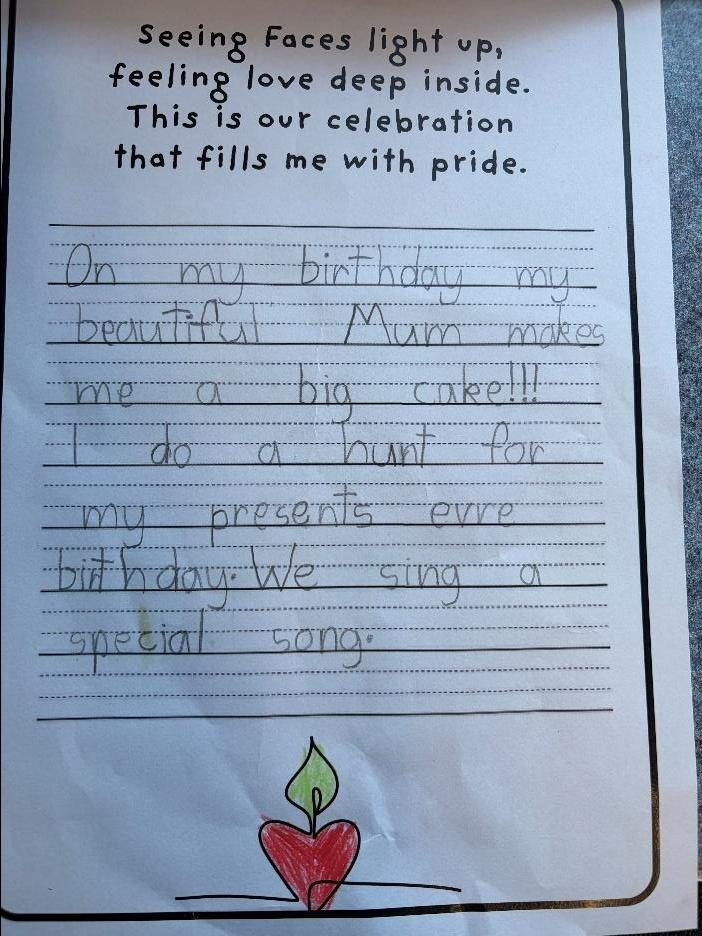 Seeing Faces light up,
feeling love deep inside.
This is our celebration
that fills me with pride.
On my birthday my
beautiful Mum makes
me a big cake!!!
I do a hunt for
my presents evre
birthday. We sing a
special song.